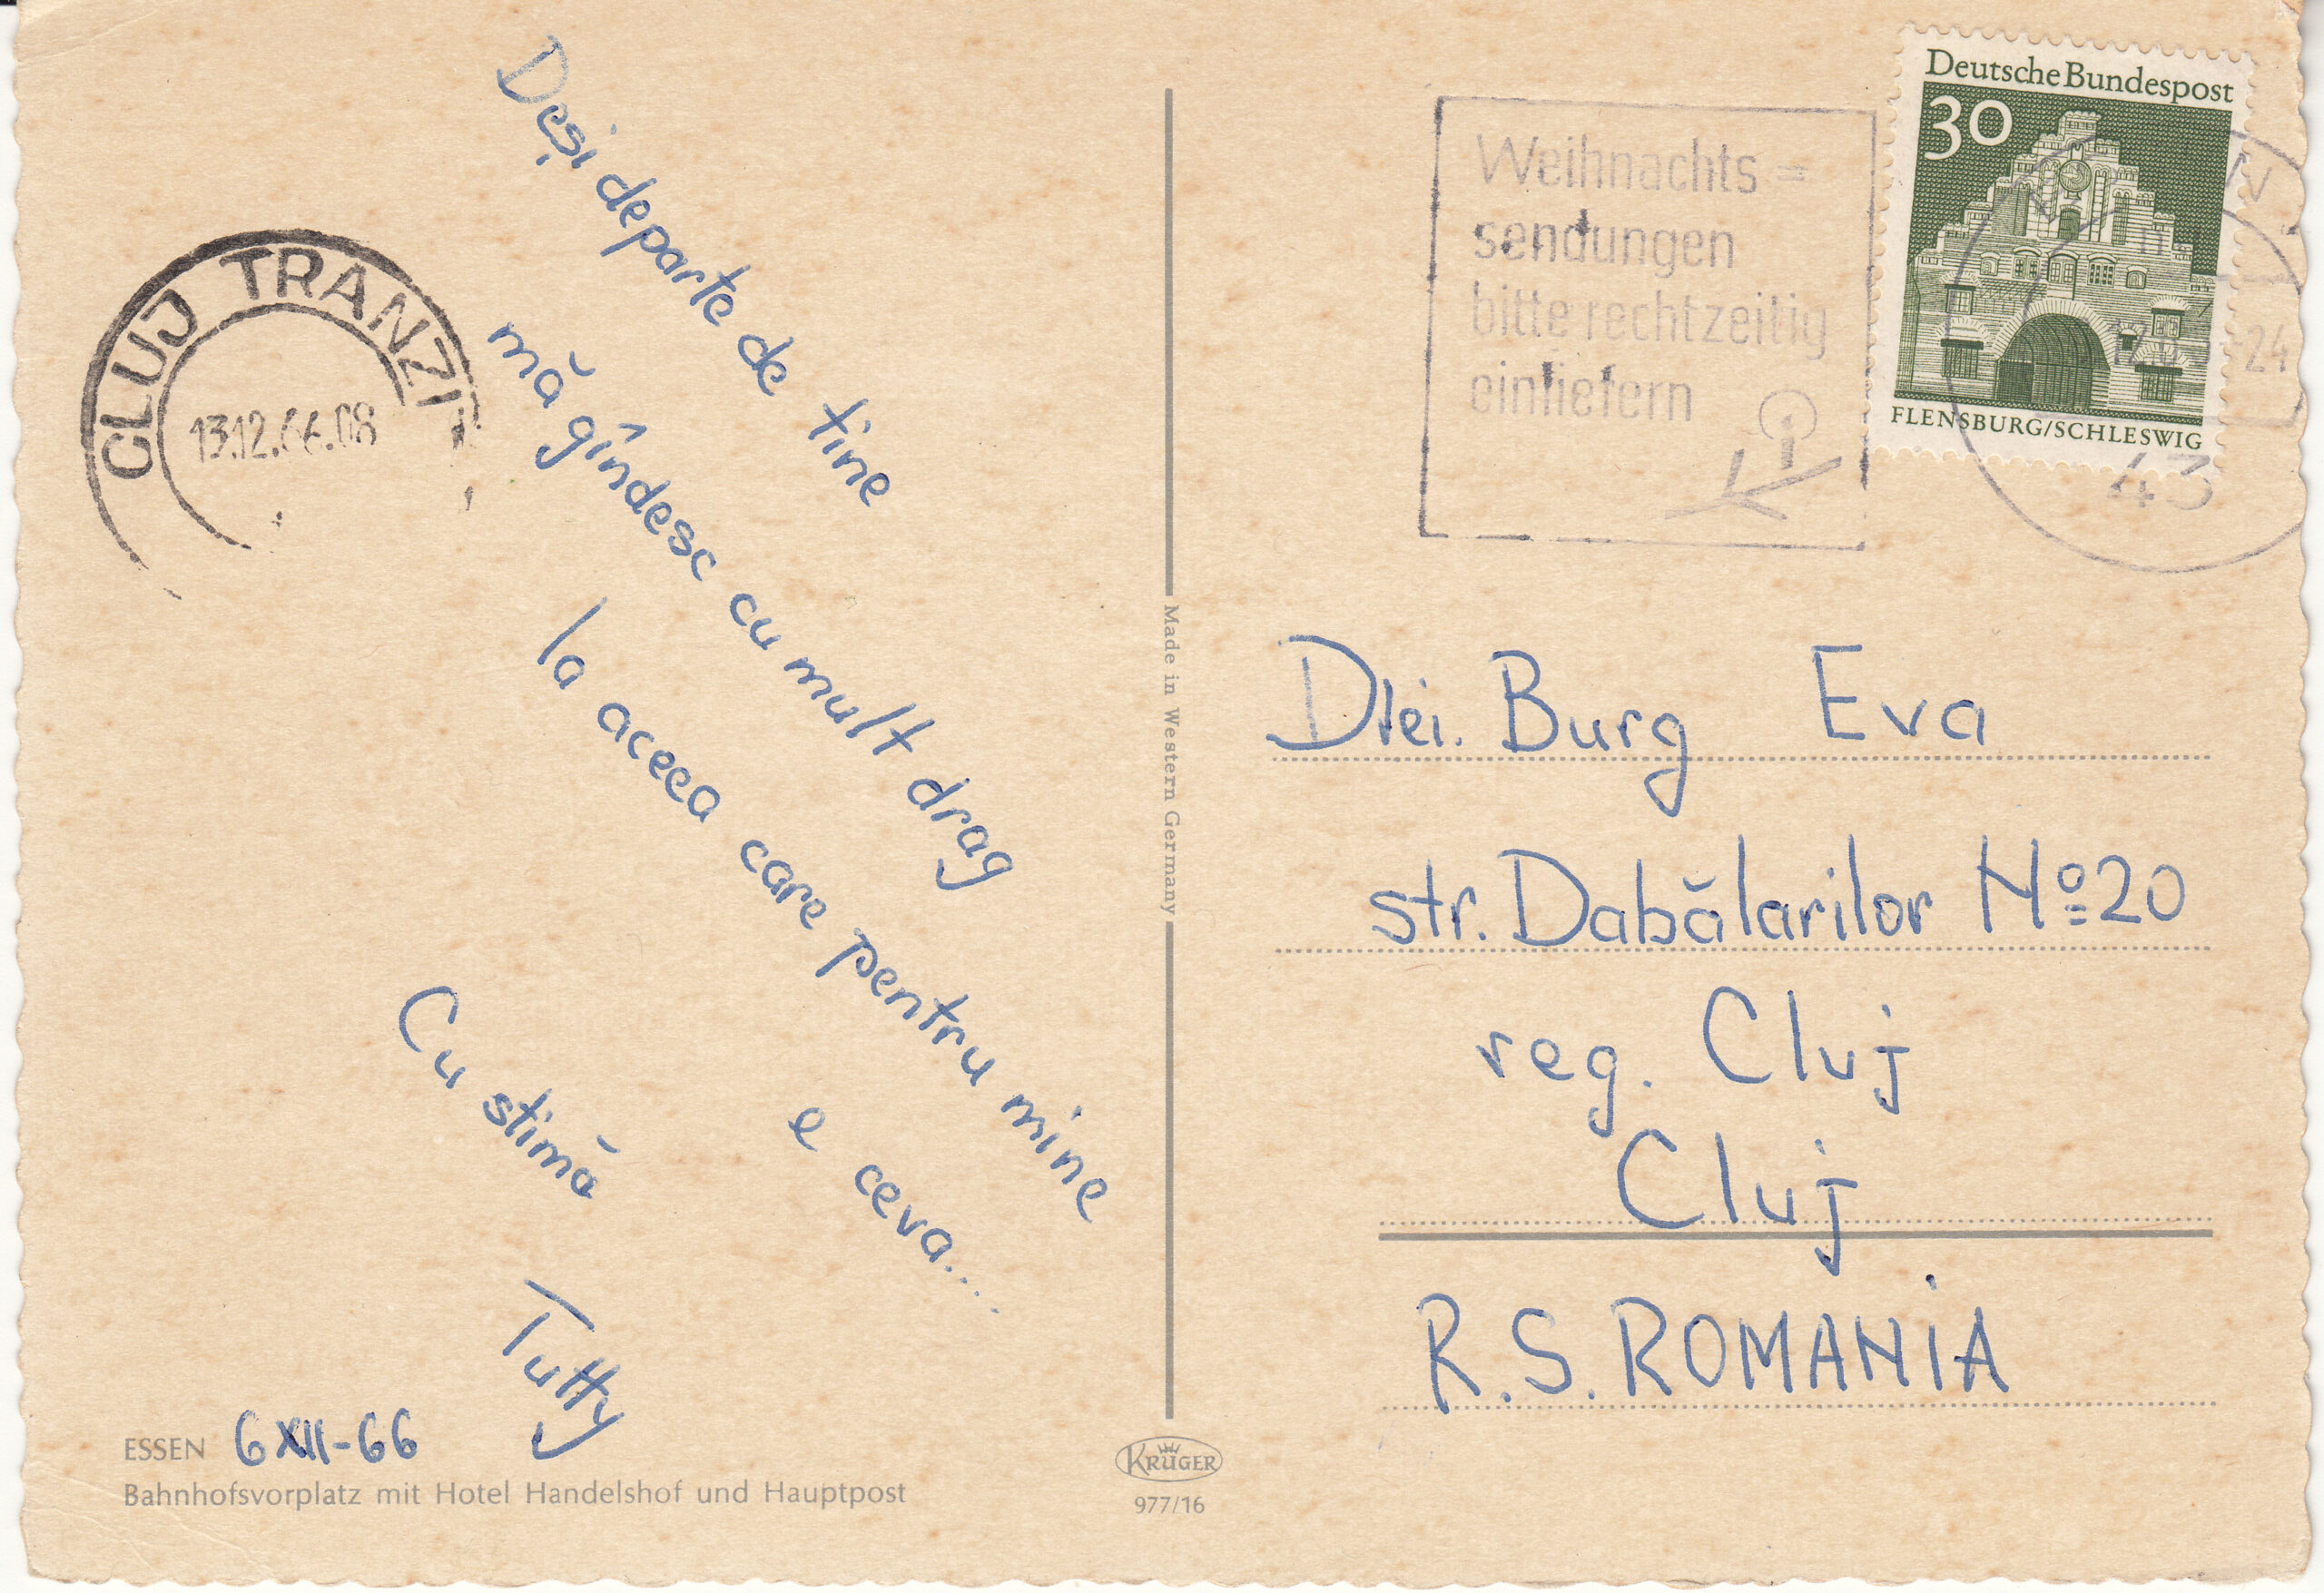 Deși departe de tine
mă gîndesc cu mult drag
la aceea care pentru mine
e ceva....
Cu stimă
Tutty
CLUJ TRANZIT
13.12.66.08
ESSEN 6 XII-66
Bahnhofsvorplatz mit Hotel Handelshof und Hauptpost
Made in Western Germany
KRÜGER
977/16
Weihnachts=
sendungen
bitte rechtzeitig
einliefern
Deutsche Bundespost
30
FLENSBURG/SCHLESWIG
24
43
Dlei. Burg Eva
str. Dabălarilor No 20
reg. Cluj
Cluj
R.S. ROMANiA